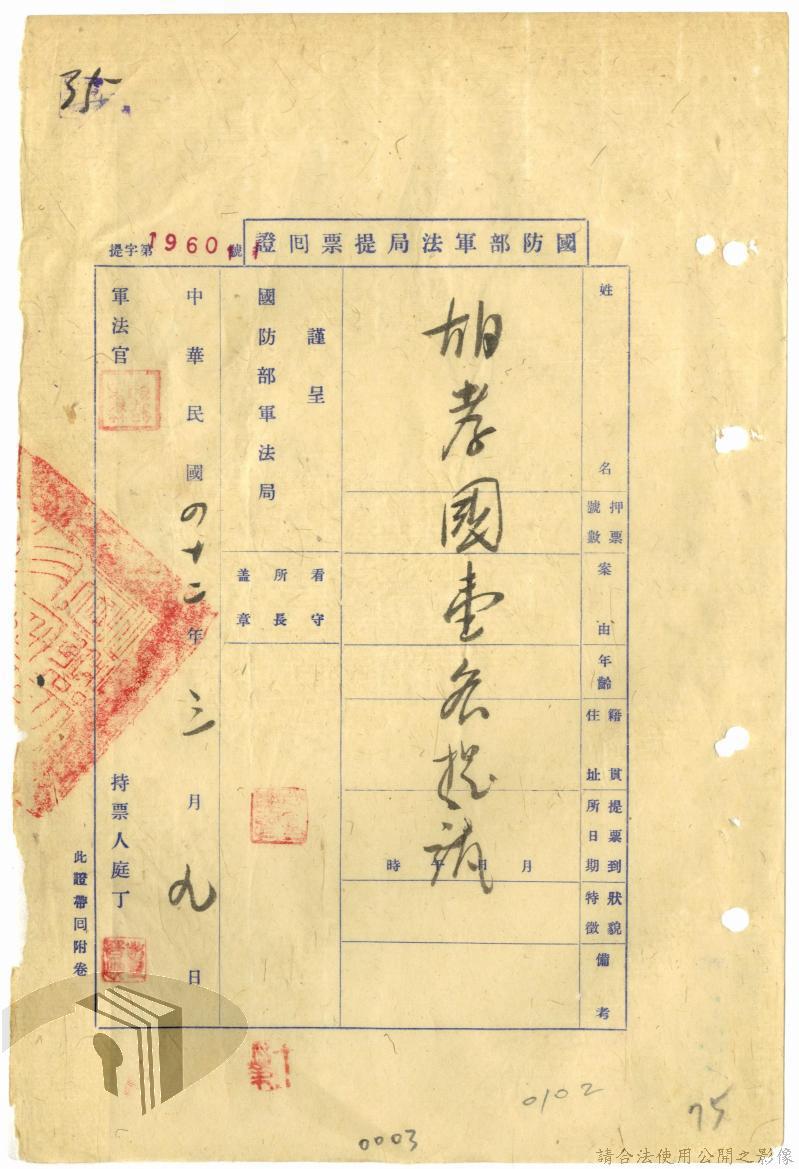 國防部軍法局提票囘證
提字第1960號
姓名
押票號數
案由
年齡
籍貫住址
提票到所日期
狀貌特徵
備考
胡孝國壹名提訊
月日午時
謹呈
國防部軍法局
看守所長蓋章
中華民國四十二年三月九日
軍法官
持票人庭丁
此證帶囘附卷
0102
75
0003
請合法使用公開之影像